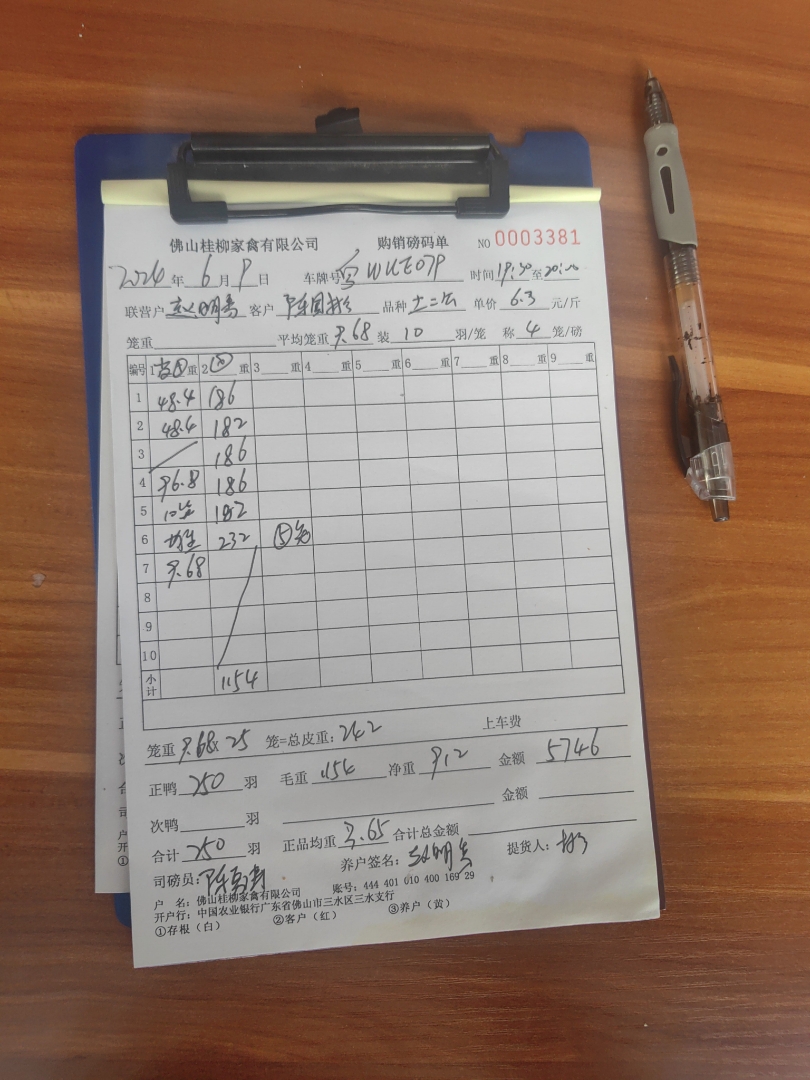 佛山桂柳家禽有限公司 购销磅码单 NO 0003381
2024 年 6 月 9 日 车牌号 WUE079 时间 19:30 至 20:00
联营户 客户 陈国彬 品种 土二 单价 6.3 元/斤
笼重 平均笼重 9.68 装 10 羽/笼 称 4 笼/磅
编号 1 重 2 重 3 重 4 重 5 重 6 重 7 重 8 重 9 重
1 48.4 186
2 48.4 182
3 186
4 96.8 186
5 10笼 182
6 232 ⑤笼
7 9.68
8
9
10
小计 1154
笼重 9.68x 25 笼=总皮重: 242 上车费
正鸭 250 羽 毛重 1154 净重 912 金额 5746
次鸭 羽 金额
合计 250 羽 正品均重 3.65 合计总金额
司磅员: 养户签名: 提货人: 彬
户 名: 佛山桂柳家禽有限公司 账号: 444 401 010 400 169 29
开户行: 中国农业银行广东省佛山市三水区三水支行
①存根（白） ②客户（红） ③养户（黄）